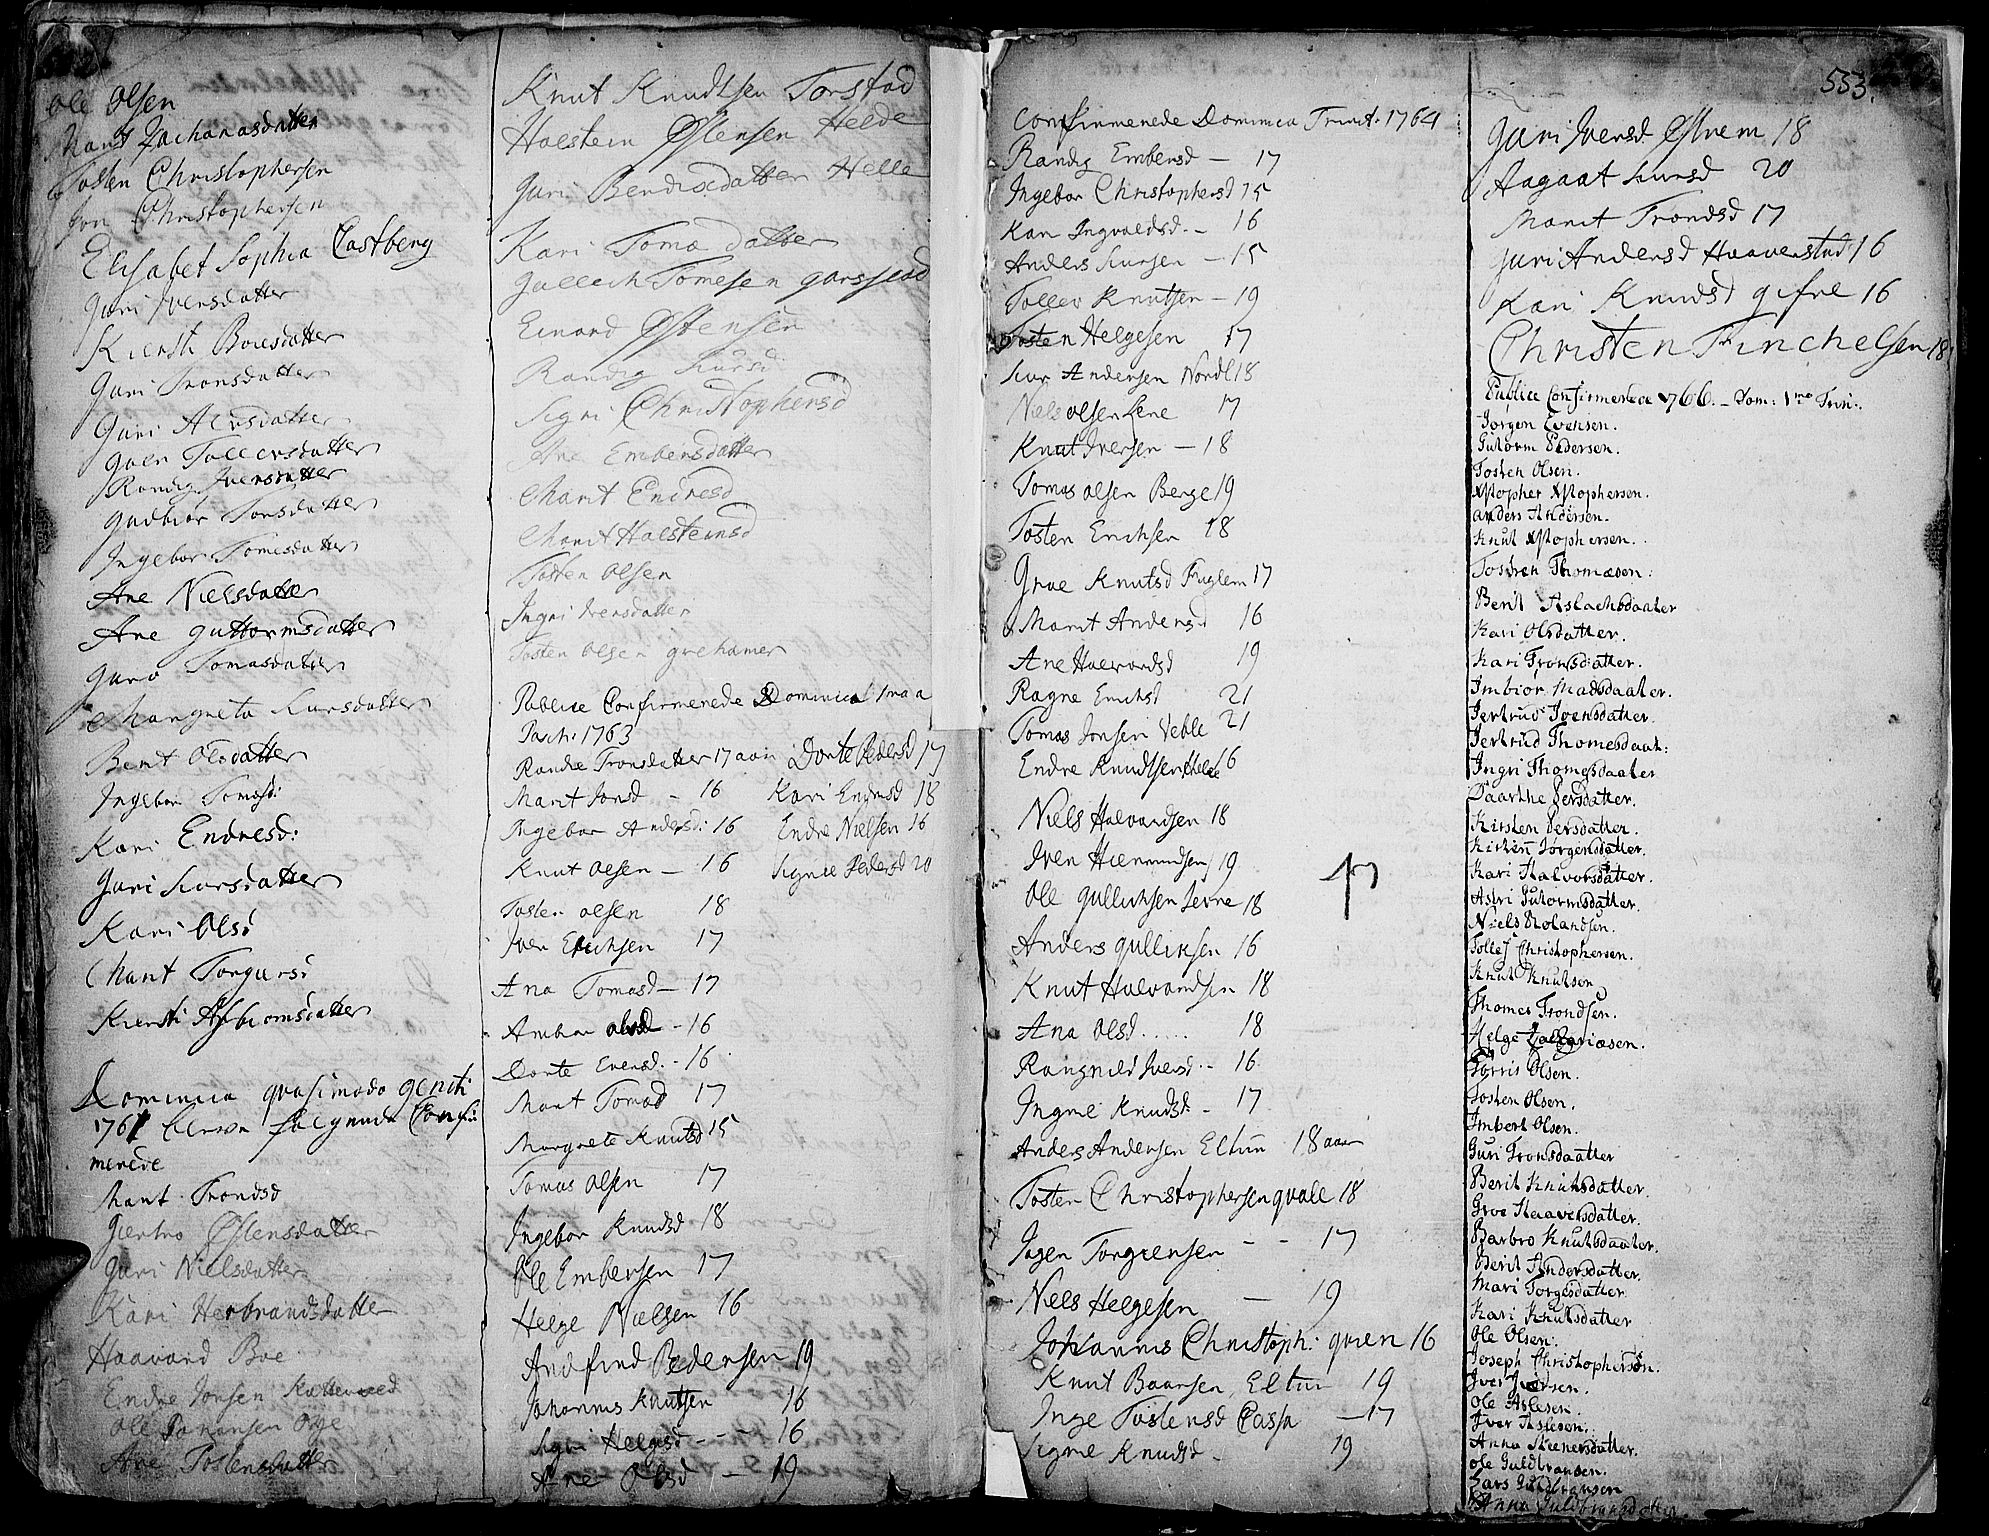 Ole Olsen
Marit Zachariasdatter
Tosten Christophersen
Jon Christophersen
Elisabet Sophia Castberg
Guri Iversdatter
Kiersti Boiesdatter
Guri Tronsdatter
Guri Alersdatter
Guri Tollersdatter
Randig Iversdatter
Gudbiør Tordsdatter
Ingebor Tomesdatter
Ane Nielsdatter
Ane Guttormsdatter
Guro Tomasdatter
Mangreta Lursdatter
Berit Olsdatter
Ingebor Tomasd:
Kari Endresd:
Guri Lursdatter
Kari Olsd
Marit Torgursd
Kiersti Asbiomsdatter
Dominica quasimodo geniti
1761 bleven følgende Confir
merede
Marit Trondsd
Giertro Østensdatter
Guri Nielsdatter
Kari Herbrandsdatter
Haavard Boe
Endre Jonsen
Ole Johansen Øye
Ane Tostensdatter
Knut Knudtsen Torstad
Halstein Østensen Helde
Guri Bendixdatter Helle
Kari Tomæ datter
Gullech Tomesen Garsjead
Einard Østensen
Randig Lursd
Sigri Christophersd
Ane Embersdatter
Marit Endresd
Marit Halsteinsd
Tosten Olsen
Ingri Iversdatter
Tosten Olsen Grehamer
Publice Confirmerede Dominica 1ma a
Pasch: 1763
Randie Tronsdatter 17 aar Dorte Pedersd 17
Marit Jonsd - 16 Kari Enersd 18
Ingebor Andersd: 16 Endre Nielsen 16
Knut Olsen - 16 Signee Pedersd 20
Tosten Olsen 18
Iver Erichsen 17
Ana Tomasd - 17
Ambor Olsd - 16
Dorte Eversd. - 16
Marit Tomasd 17
Margrete Knutsd 15
Tomas Olsen 17
Ingebor Knudsd 18
Ole Embersen 17
Helge Nielsen 16
Andfind Pedersen 19
Johannis Knutsen 16
Sigri Helgesd - - 16
Ane Olsd - 19
Confirmerede Dominica Trinit: 1764
Randig Embersd - 17
Ingebor Christophersd 15
Kari Ingvaldsd. - 16
Anders Lursen - 15
Tollev Knutsen - 19
Tosten Helgesen 17
Lur Andersen Nordl 18
Niels Olsen Lene 17
Knut Iversen - 18
Tomas Olsen Berge 19
Tosten Erichsen 18
Groe Knutsd Fuglem 17
Marit Andersd 16
Ane Halvordsd 19
Ragne Erichsd 21
Tomas Jonsen Veble 21
Endre Knudtsen Helle 16
Niels Halvordsen 18
Iven Hiermundsen 19
Ole Gullichsen Jevne 18
Anders Gulliksen 16
Knut Halvordsen 18
Ana Olsd ..... 18
Rangnild Iversd - - 16
Ingrie Knudsd: - 17
Anders Andersen Eltun 18 aar
Tosten Christophersen Quale 18
Jogen Torgiersen - - 17
Niels Helgesen - 19
Johannis Christoph: Quien 16
Knut Baarsen, Eltun 19
Inge Tostensd Cassa - 17
Signe Knudsd - 19
553.
Guri Iversd Østrem 18
Aagaat Lursd 20
Marit Trondsd 17
Guri Andersd Haaverstad 16
Kari Knudsd Gifre 16
Christen Finchelsen 18
Publice Confirmerede 1766. - Dom: 1ma Trin:
Jørgen Evensen.
Gutorm Pedersen.
Tosten Olsen.
Xstopher Xstophersen.
Anders Andersen.
Knut Xstophersen.
Tosten Thomæsen:
Berit Aslachsdaater
Kari Olsdatter.
Kari Tronsdatter.
Imbiør Madsdaater.
Jertrud Ivensdatter.
Jertrud Thomesdaat:
Ingri Thomesdaater
Daarthe Persdatter.
Kirsten Persdatter.
Kirsten Jørgensdatter.
Kari Halvorsdatter.
Astri Gutormsdatter.
Niels Rolandsen.
Tollef Christophersen.
Knut Knutsen
Thomes Trondsen.
Helge Zachariæsen.
Torris Olsen.
Tosten Olsen.
Imbert Olsen.
Guri Tronsdaatter
Berit Knutsdatter.
Groe Haaversdatter.
Barbro Knutsdaater.
Berit Andersdatter.
Mari Torgesdatter
Kari Knutsdatter
Ole Olsen:
Joseph Christophersøn.
Iver Iversen.
Ole Aslesen.
Iver Aslesen.
Anna Steenersdatter.
Ole Guldbransen.
Lars Guldbransen
Anna Guldbransdatter